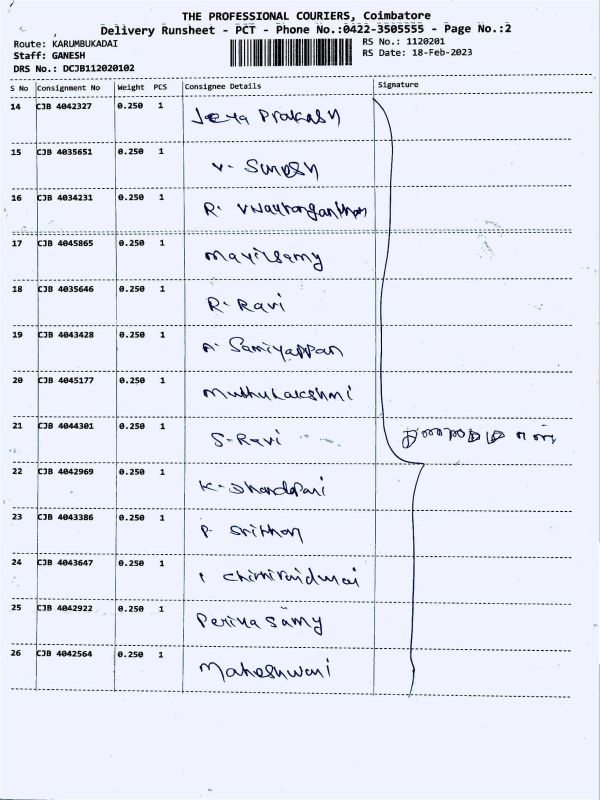 THE PROFESSIONAL COURIERS, Coimbatore
Delivery Runsheet - PCT - Phone No.:0422-3505555 - Page No.:2
Route: KARUMBUKADAI
Staff: GANESH
DRS No.: DCJB112020102
RS No.: 1120201
RS Date: 18-Feb-2023
S No Consignment No Weight PCS Consignee Details Signature
14 CJB 4042327 0.250 1 Jeya Prakash
15 CJB 4035651 0.250 1 V. Suresh
16 CJB 4034231 0.250 1 R.
17 CJB 4045865 0.250 1 Mayilsamy
18 CJB 4035646 0.250 1 R. Ravi
19 CJB 4043428 0.250 1 Samiyappan
20 CJB 4045177 0.250 1 Muthulakshmi
21 CJB 4044301 0.250 1 S. Ravi
22 CJB 4042969 0.250 1 K. Dhandapani
23 CJB 4043386 0.250 1 P.
24 CJB 4043647 0.250 1
25 CJB 4042922 0.250 1 Periyasamy
26 CJB 4042564 0.250 1 Maheshwari